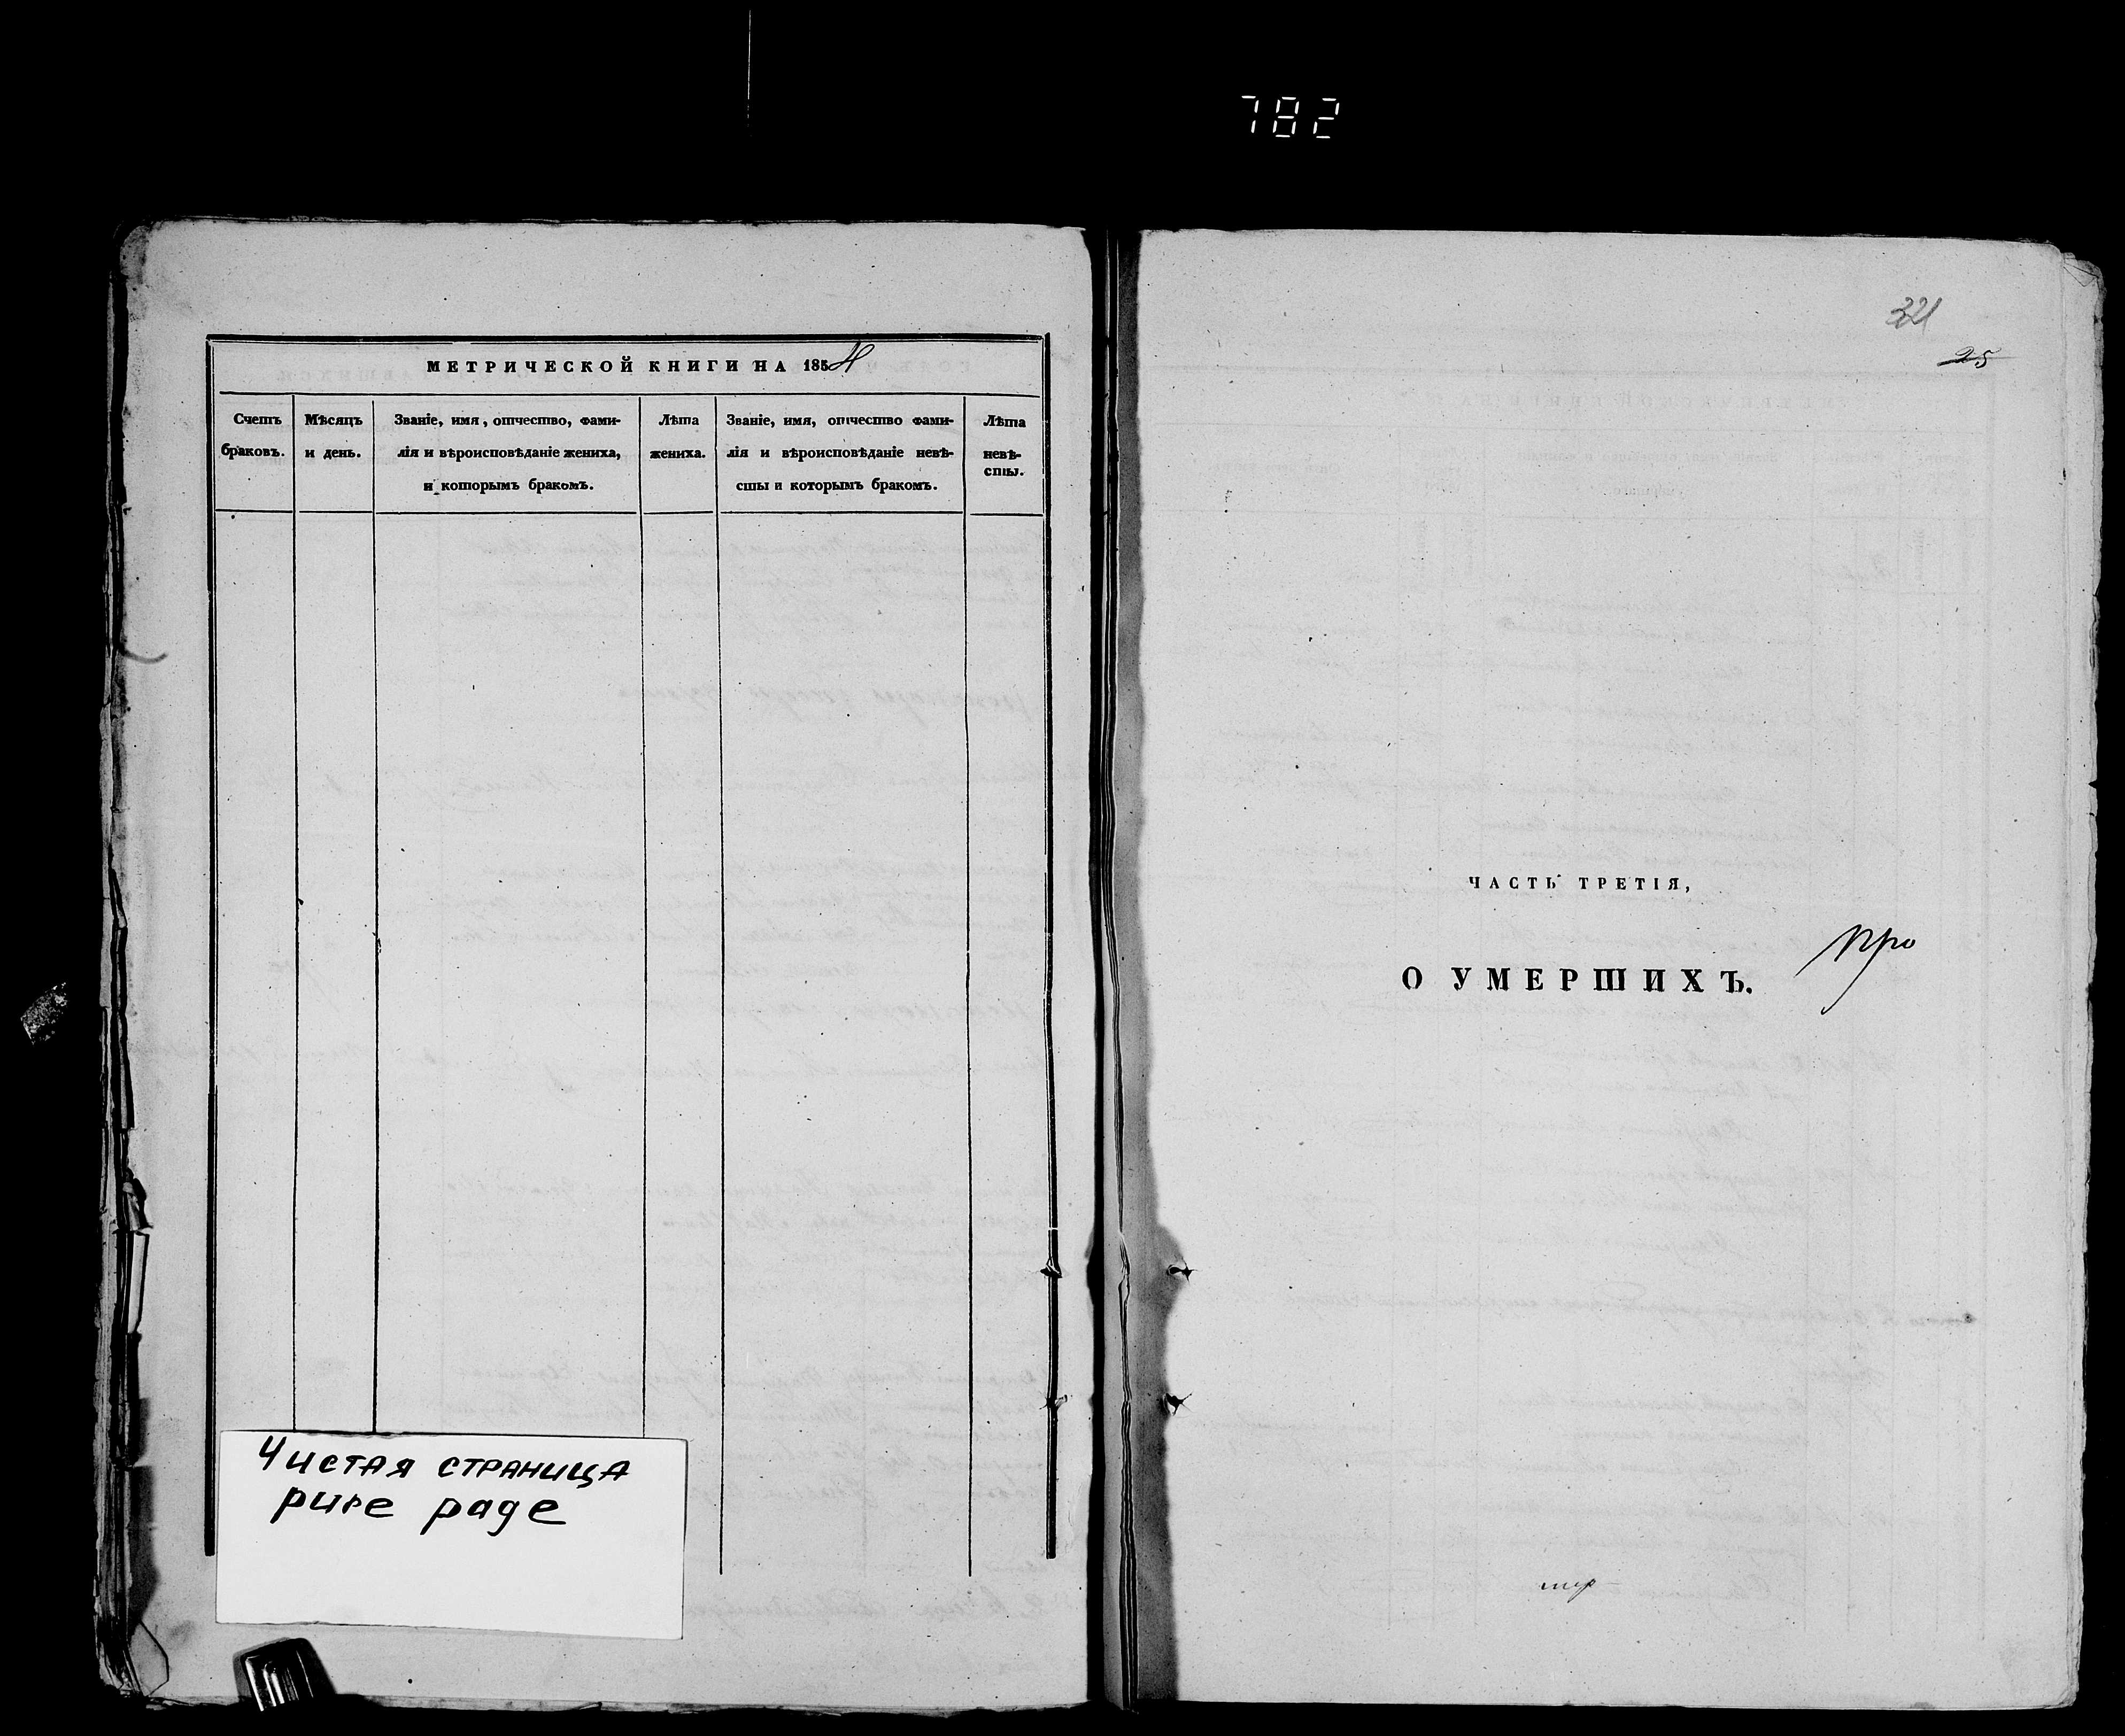 782
МЕТРИЧЕСКОЙ КНИГИ НА 1854
Счетъ браковъ.
Мѣсяцъ и день.
Званіе, имя, отчество, фами-
лія и вѣроисповѣданіе жениха,
и которымъ бракомъ.
Лѣта
жениха.
Званіе, имя, отчество фами-
лія и вѣроисповѣданіе невѣ-
сты и которымъ бракомъ.
Лѣта
невѣ-
сты.
Чистая страница
pure page
321
25
ЧАСТЬ ТРЕТІЯ,
О УМЕРШИХЪ.